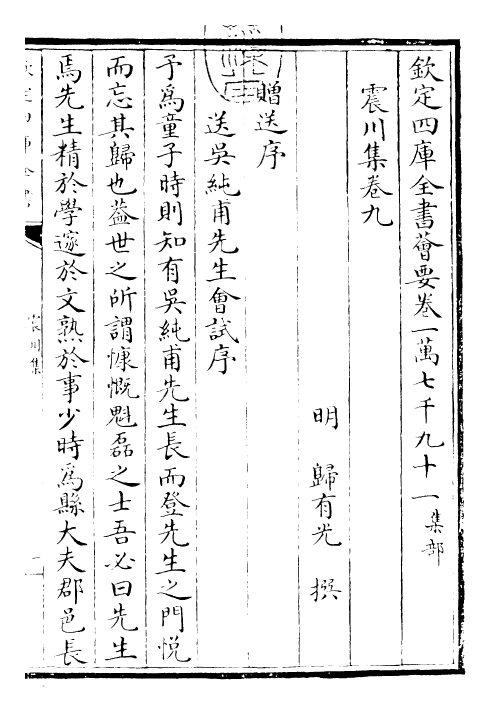 欽定四庫全書薈要卷一萬七千九十一 集部
震川集卷九
明 歸有光 撰
贈送序
送吳純甫先生會試序
予爲童子時則知有吳純甫先生長而登先生之門悅
而忘其歸也葢世之所謂慷慨魁磊之士吾必曰先生
焉先生精於學邃於文熟於事少時爲縣大夫郡邑長
震川集
一